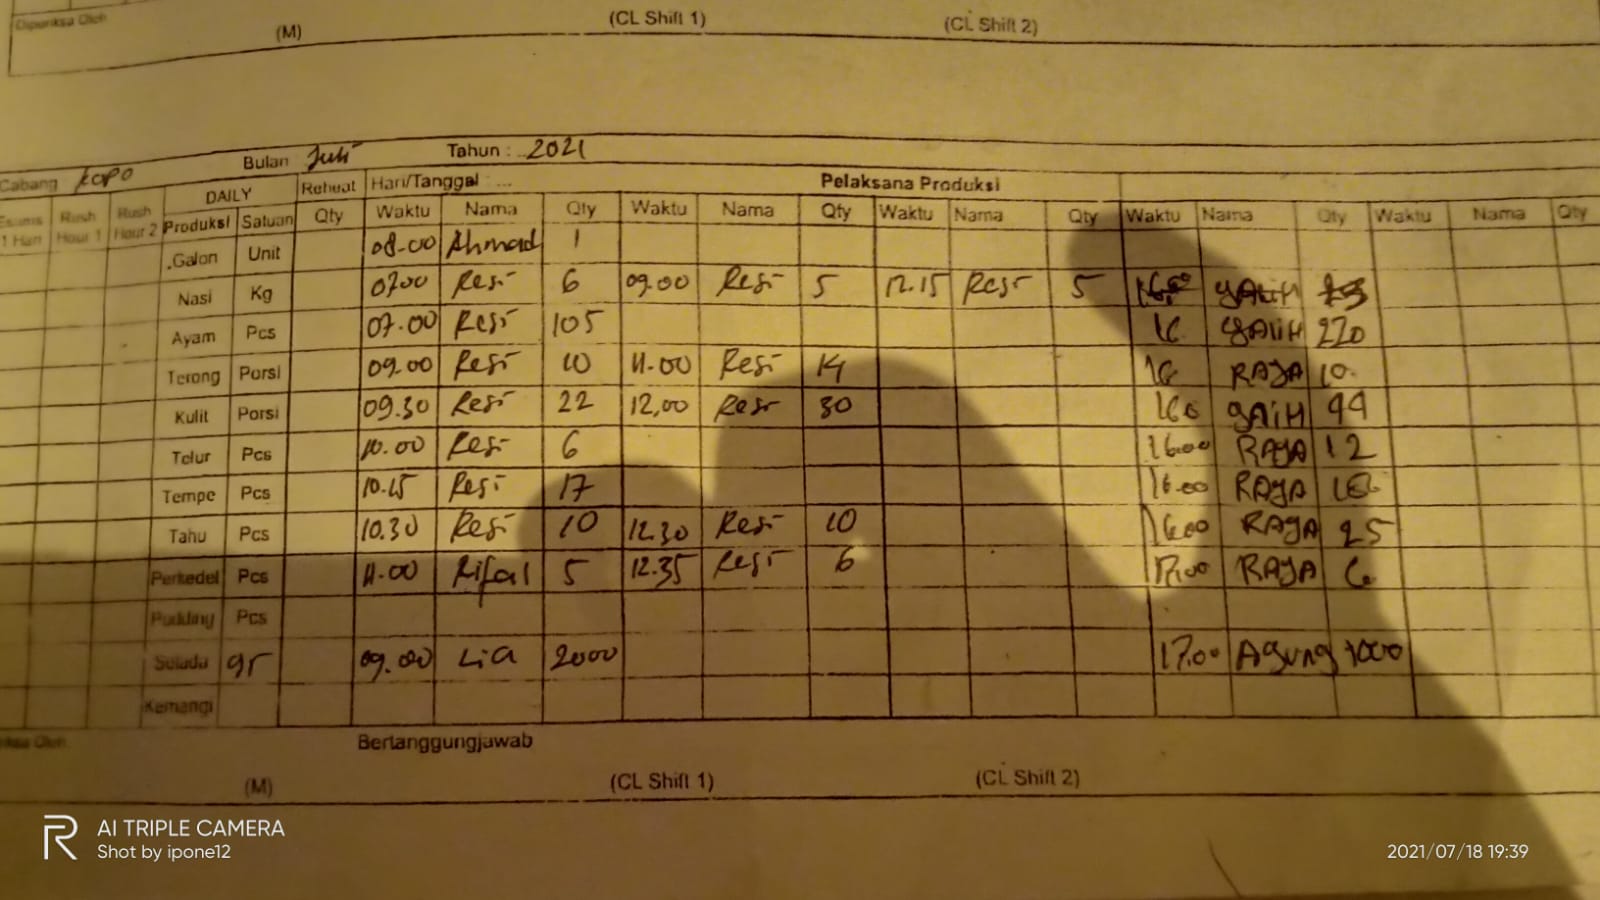 Diperiksa Oleh
(M) (CL Shift 1) (CL Shift 2)
Cabang Kopo Bulan Juli Tahun : 2021
DAILY Reheat Hari/Tanggal : ... Pelaksana Produksi
1 Hari Rush Hour 1 Rush Hour 2 Produksi Satuan Qty Waktu Nama Qty Waktu Nama Qty Waktu Nama Qty Waktu Nama Qty Waktu Nama Qty
Galon Unit 08-00 Ahmad 1
Nasi Kg 07.00 Resi 6 09.00 Resi 5 12.15 Resi 5
Ayam Pcs 07.00 Resi 105 16 GALIH 220
Terong Porsi 09.00 Resi 10 11.00 Resi 14 16 RAJA 10
Kulit Porsi 09.30 Resi 22 12.00 Resi 30 GALIH 44
Telur Pcs 10.00 Resi 6 16.00 RAJA 12
Tempe Pcs 10.15 Resi 17 16.00 RAJA
Tahu Pcs 10.30 Resi 10 12.30 Resi 10 16.00 RAJA 25
Perkedel Pcs 11.00 Rifal 5 12.35 Resi 6 17.00 RAJA 6
Pudding Pcs
Selada gr 09.00 Lia 2000 17.00 Agung 1000
Kemangi
Bertanggungjawab
(M) (CL Shift 1) (CL Shift 2)
AI TRIPLE CAMERA
Shot by ipone12
2021/07/18 19:39